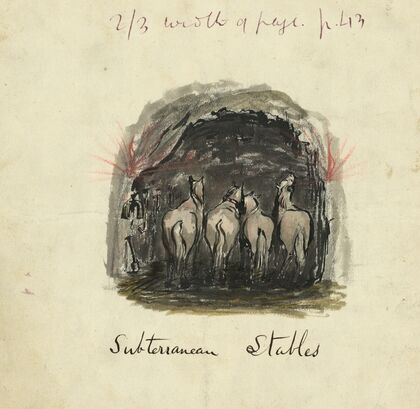 2/3 width of page. p.43
Subterranean Stables